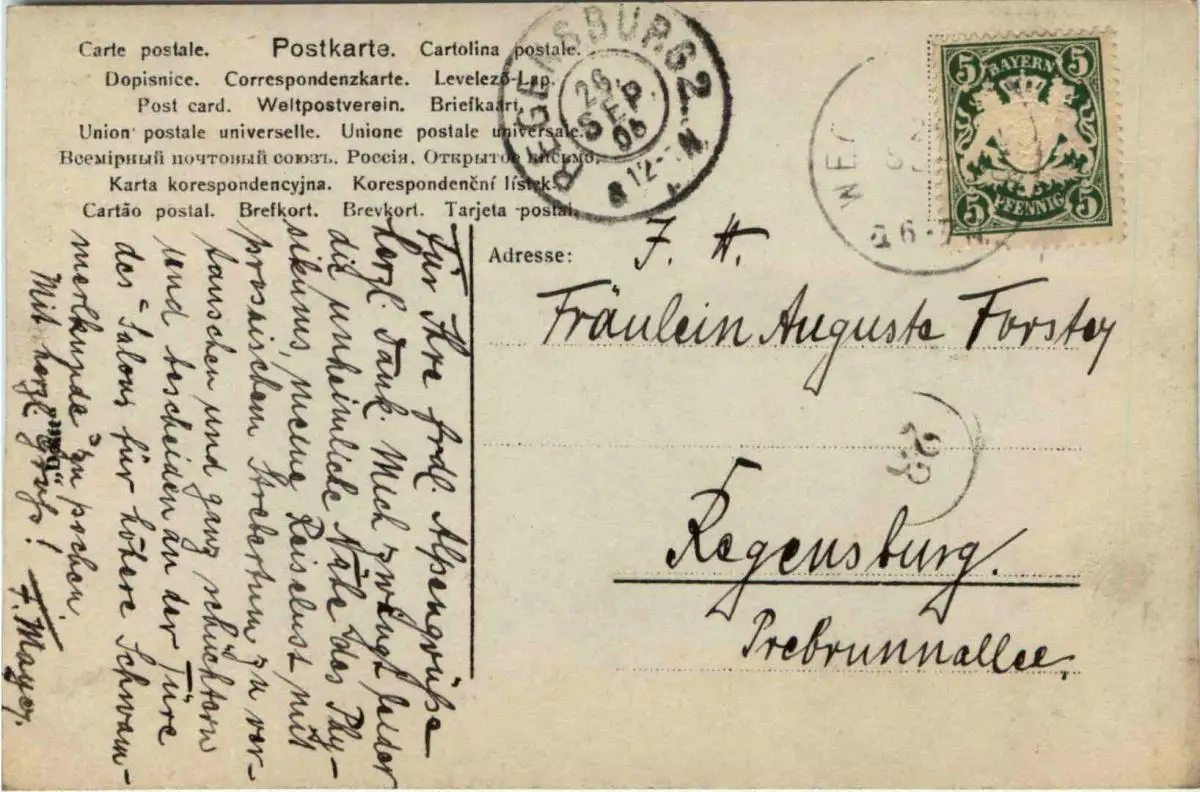 Carte postale. Postkarte. Cartolina postale.
Dopisnice. Correspondenzkarte. Levelező-Lap.
Post card. Weltpostverein. Briefkaart.
Union postale universelle. Unione postale universale.
Всемірный почтовый союзъ. Россія. Открытое письмо.
Karta korespondencyjna. Korespondenční lístek.
Cartão postal. Brefkort. Brevkort. Tarjeta postal.
REGENSBURG 2
26.
SEP.
06
BAYERN
5 5
5 5
PFENNIG
6-7 N.
Adresse:
Fräulein Auguste Forster
Regensburg.
Prebrunnallee.
Für Ihre frdl. Alpengrüße
herzl. Dank. Mich zwingt leider
die unheimliche Nähe des Phy-
sikums, meine Reiselust mit
prosaischem Strebertum zu ver-
tauschen und ganz schüchtern
und bescheiden an der Türe
des "Salons für höhere Schwam-
merlkunde" zu pochen.
Mit herzl. Gruß!
F. Mayer.